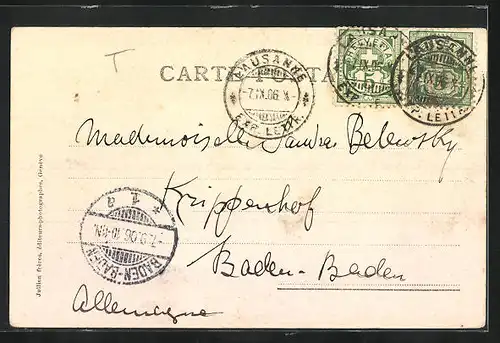 T
CARTE POSTALE
LAUSANNE
-7.IX.06.
EXP. LETTR.
LAUSANNE
EXP. LETTR.
HELVETIA
5
5
Mademoiselle Sandra Belewsky
Krippenhof
Baden-Baden
Allemagne
* 1.a *
7.9.06.10-11N.
BADEN-BADEN
Jullien frères, éditeurs-photographes, Genève